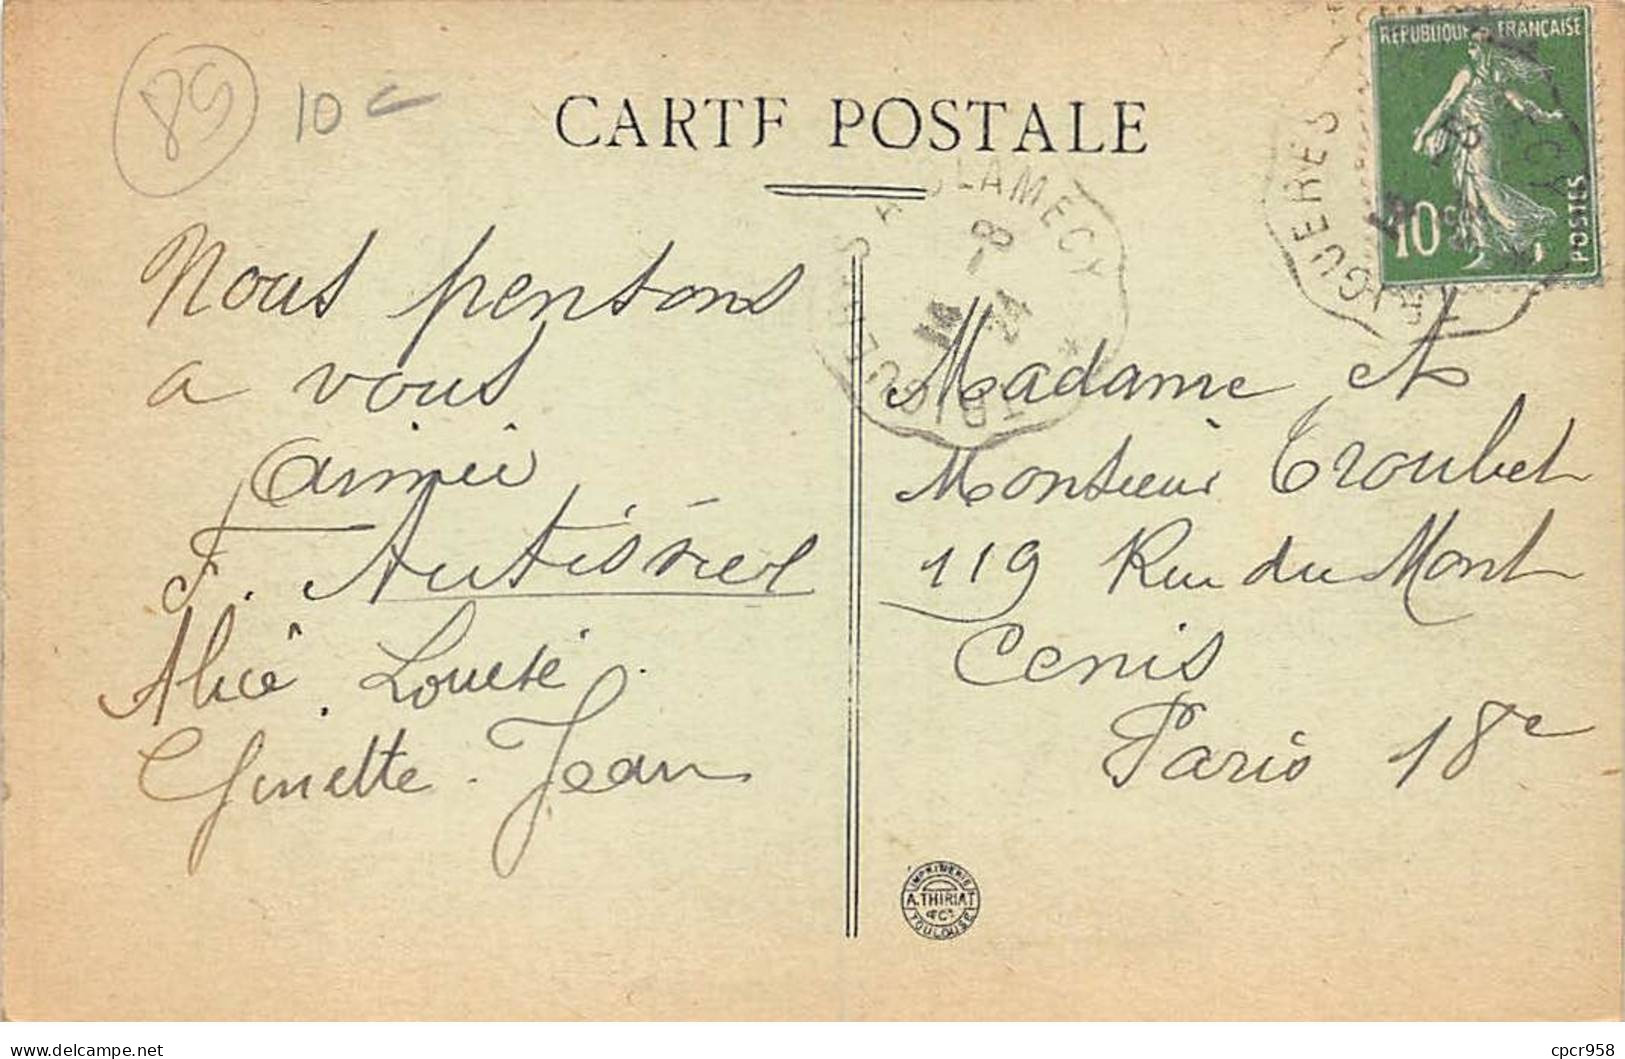 89
10c
CARTE POSTALE
REPUBLIQUE FRANÇAISE
10c
POSTES
TRIGUERES A CLAMECY
14 -8 24
Nous pensons
a vous
Aimée
F.
Alice. Loueté.
Ginette. Jean
Madame et
Monsieur Troubet
119 Rue du Mont
Cenis
Paris 18e
IMPRIMERIE
A. THIRIAT
& Cie
TOULOUSE
delcampe.net
cpcr958